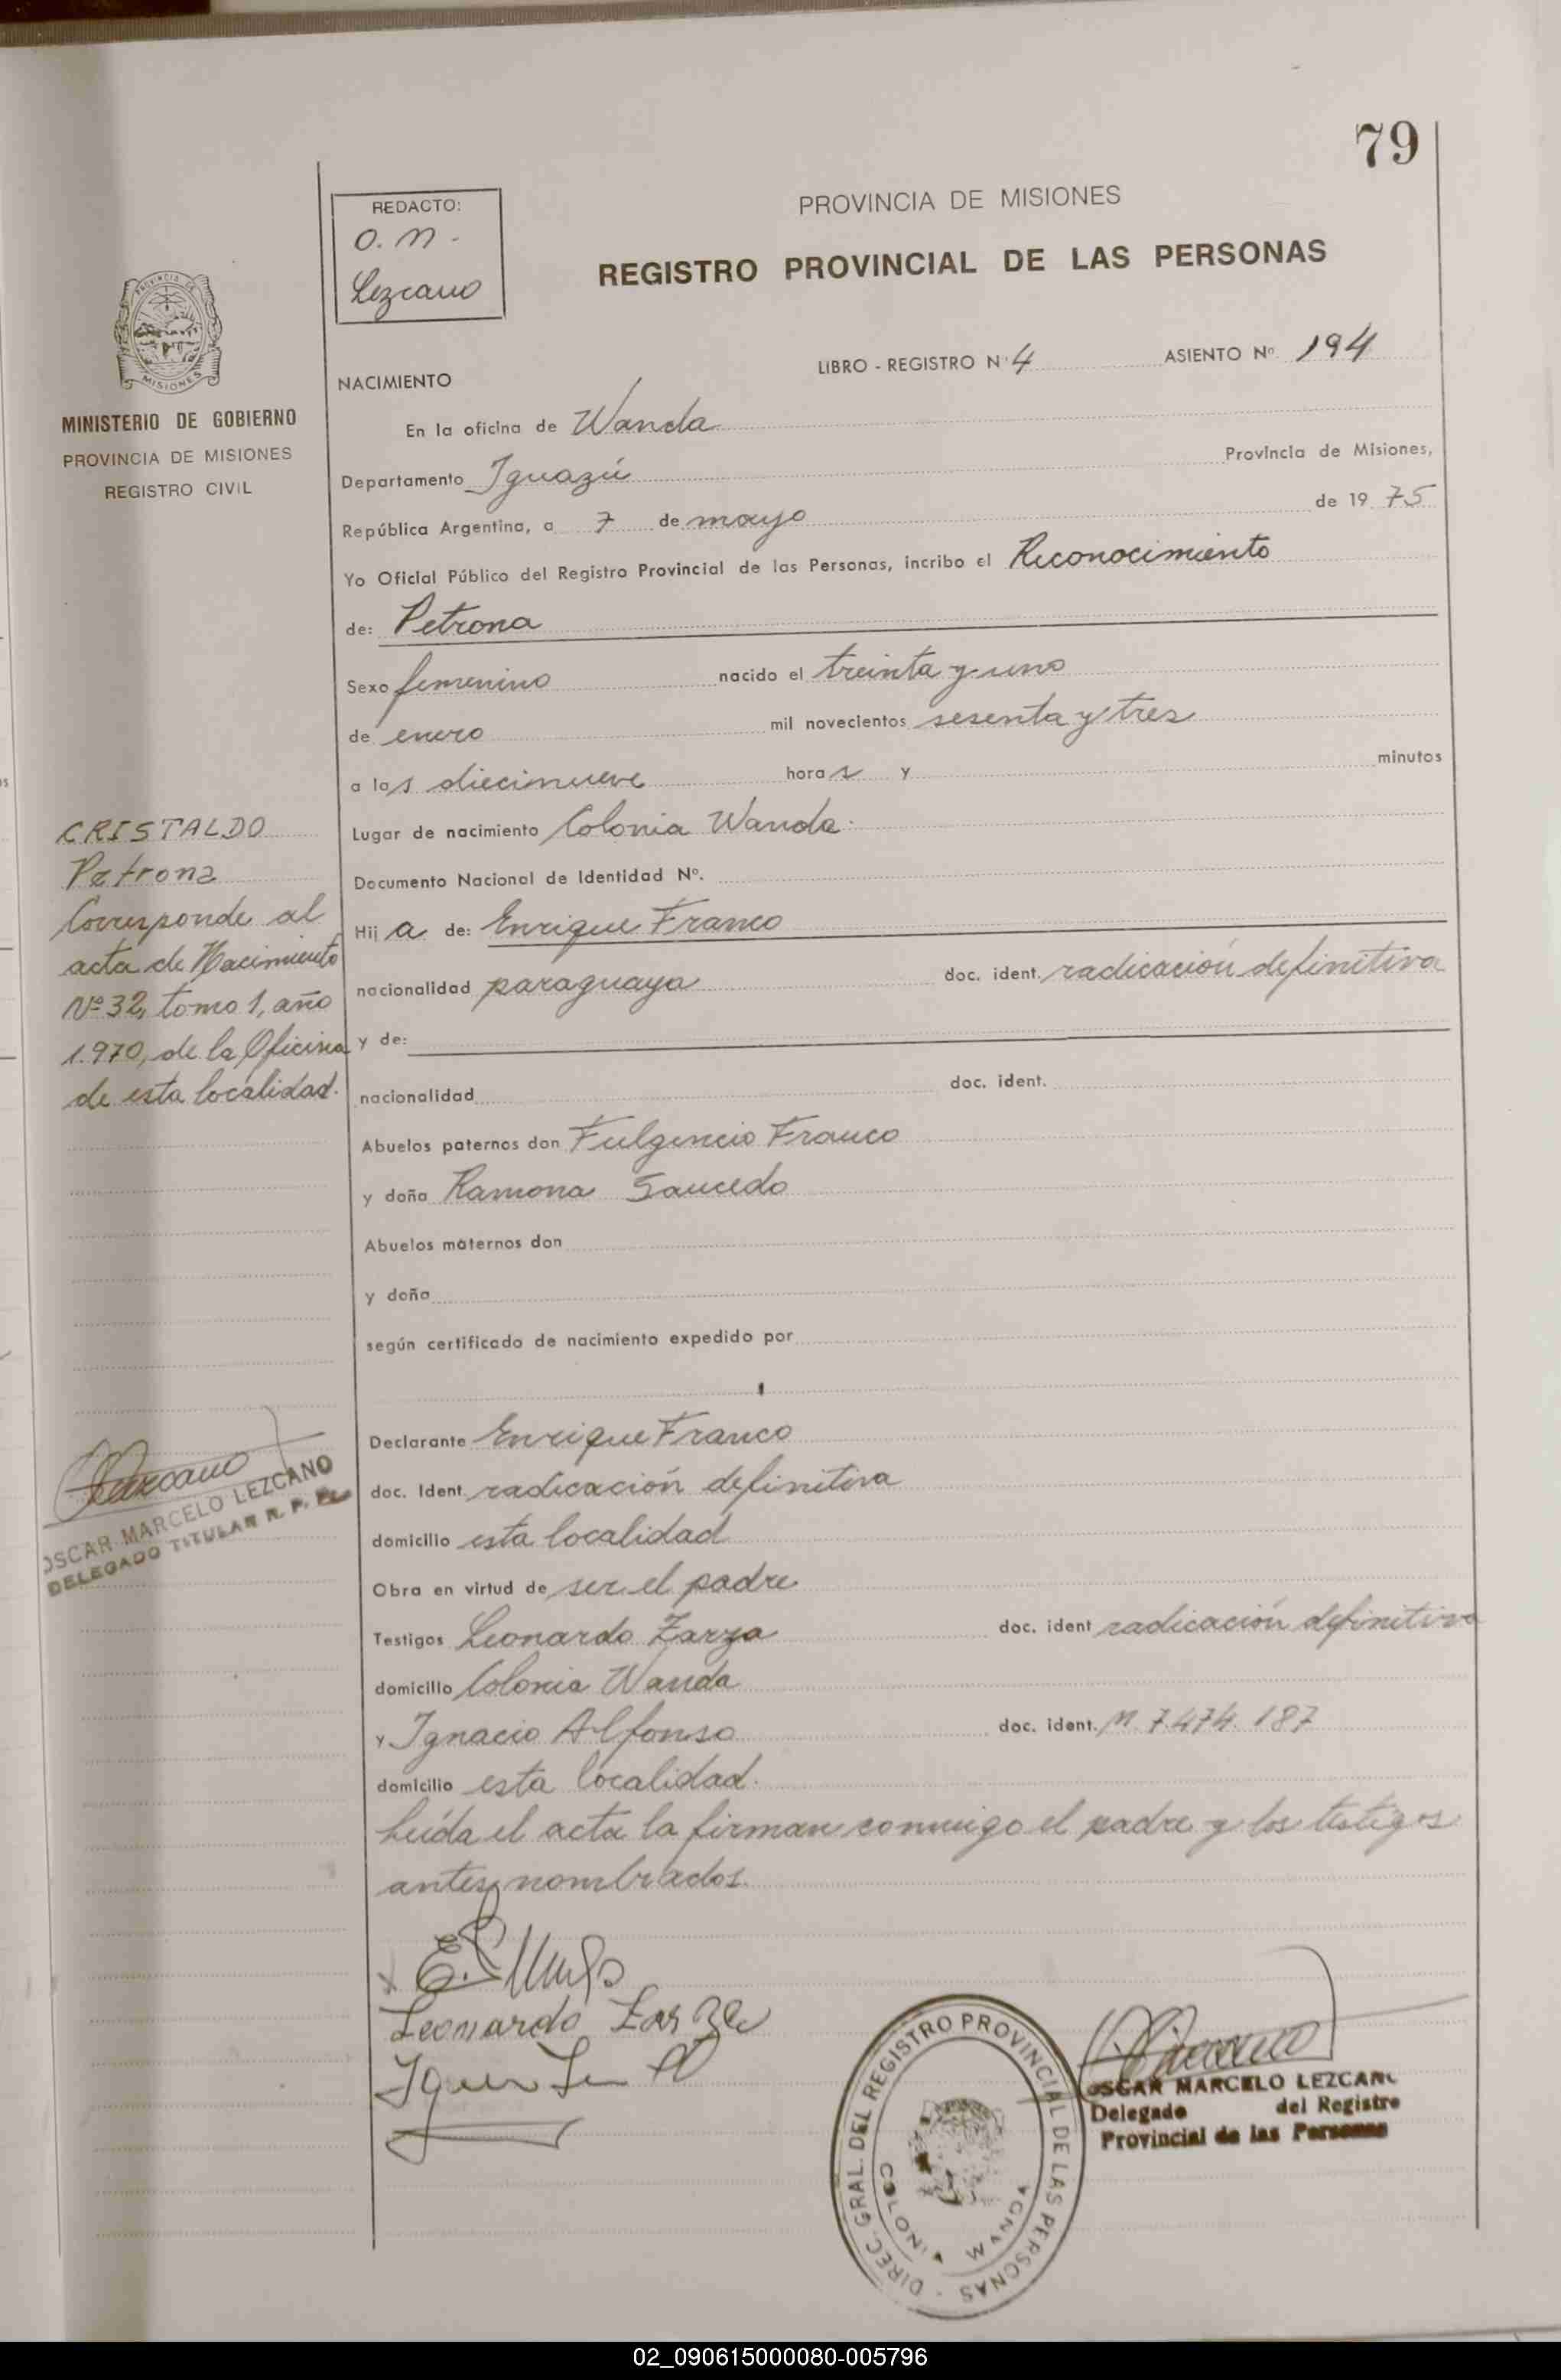 79
REDACTO:
O. M.
Lezcano
PROVINCIA DE MISIONES
REGISTRO PROVINCIAL DE LAS PERSONAS
LIBRO - REGISTRO N° 4 ASIENTO Nº 194
NACIMIENTO
MINISTERIO DE GOBIERNO
PROVINCIA DE MISIONES
REGISTRO CIVIL
En la oficina de Wanda
Departamento Iguazú Provincia de Misiones,
República Argentina, a 7 de mayo de 1975
Yo Oficial Público del Registro Provincial de las Personas, incribo el Reconocimiento
de: Petrona
Sexo femenino nacido el treinta y uno
de enero mil novecientos sesenta y tres
a las diecinueve horas y minutos
Lugar de nacimiento Colonia Wanda.
Documento Nacional de Identidad Nº.
Hija de: Enrique Franco
nacionalidad paraguaya doc. ident. radicación definitiva
y de:
nacionalidad doc. ident.
Abuelos paternos don Fulgencio Franco
y doña Ramona Saucedo
Abuelos maternos don
y doña
según certificado de nacimiento expedido por
Declarante Enrique Franco
doc. Ident. radicación definitiva
domicilio esta localidad
Obra en virtud de ser el padre
Testigos Leonardo Zarza doc. ident radicación definitiva
domicilio Colonia Wanda
y Ignacio Alfonso doc. ident. M. 7.474.187
domicilio esta localidad.
Leída el acta la firman conmigo el padre y los testigos
antes nombrados.
CRISTALDO
Petrona
Corresponde al
acta de Nacimiento
Nº 32, tomo 1, año
1.970, de la Oficina
de esta localidad.
OSCAR MARCELO LEZCANO
DELEGADO TITULAR R. P. P.
Leonardo Zarza
DIREC. GRAL. DEL REGISTRO PROVINCIAL DE LAS PERSONAS
COLONIA WANDA
OSCAR MARCELO LEZCANO
Delegado del Registro
Provincial de las Personas
02_090615000080-005796